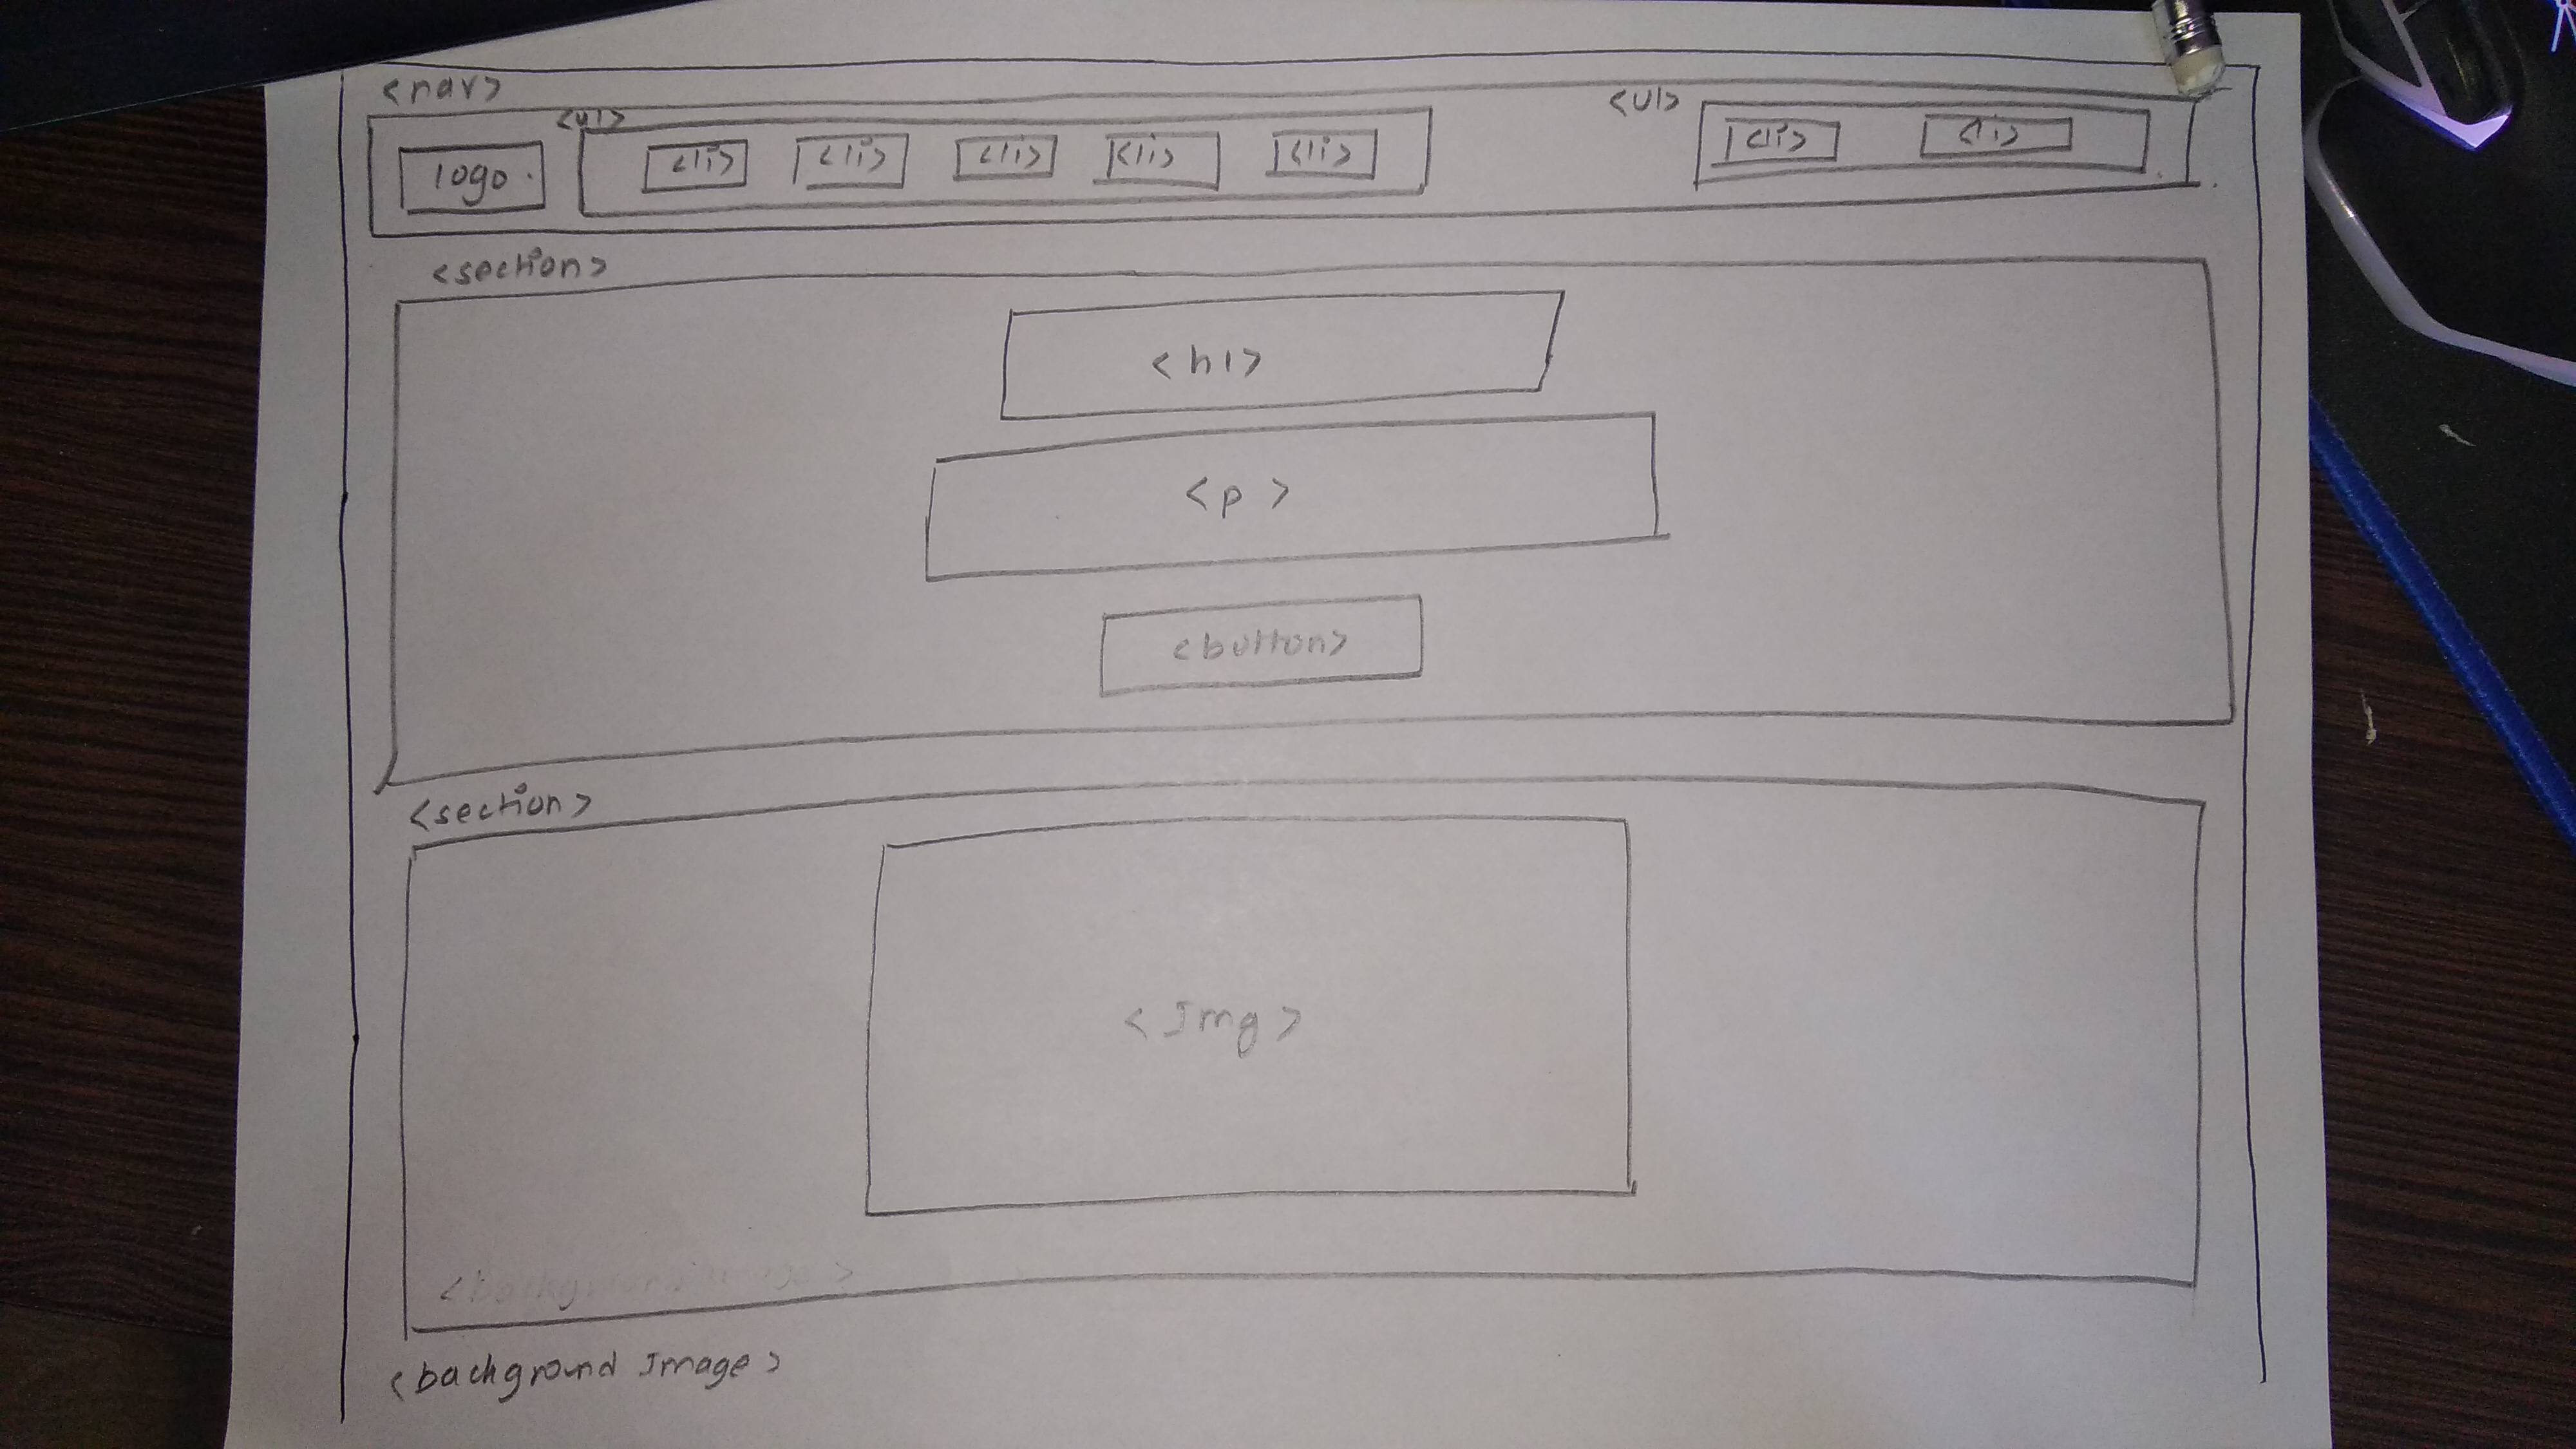 <nav>
<ul>
<ul>
logo
<li> <li> <li> <li> <li>
<li> <li>
<section>
<h1>
<p>
<button>
<section>
<Img>
<background image>
<background Image>